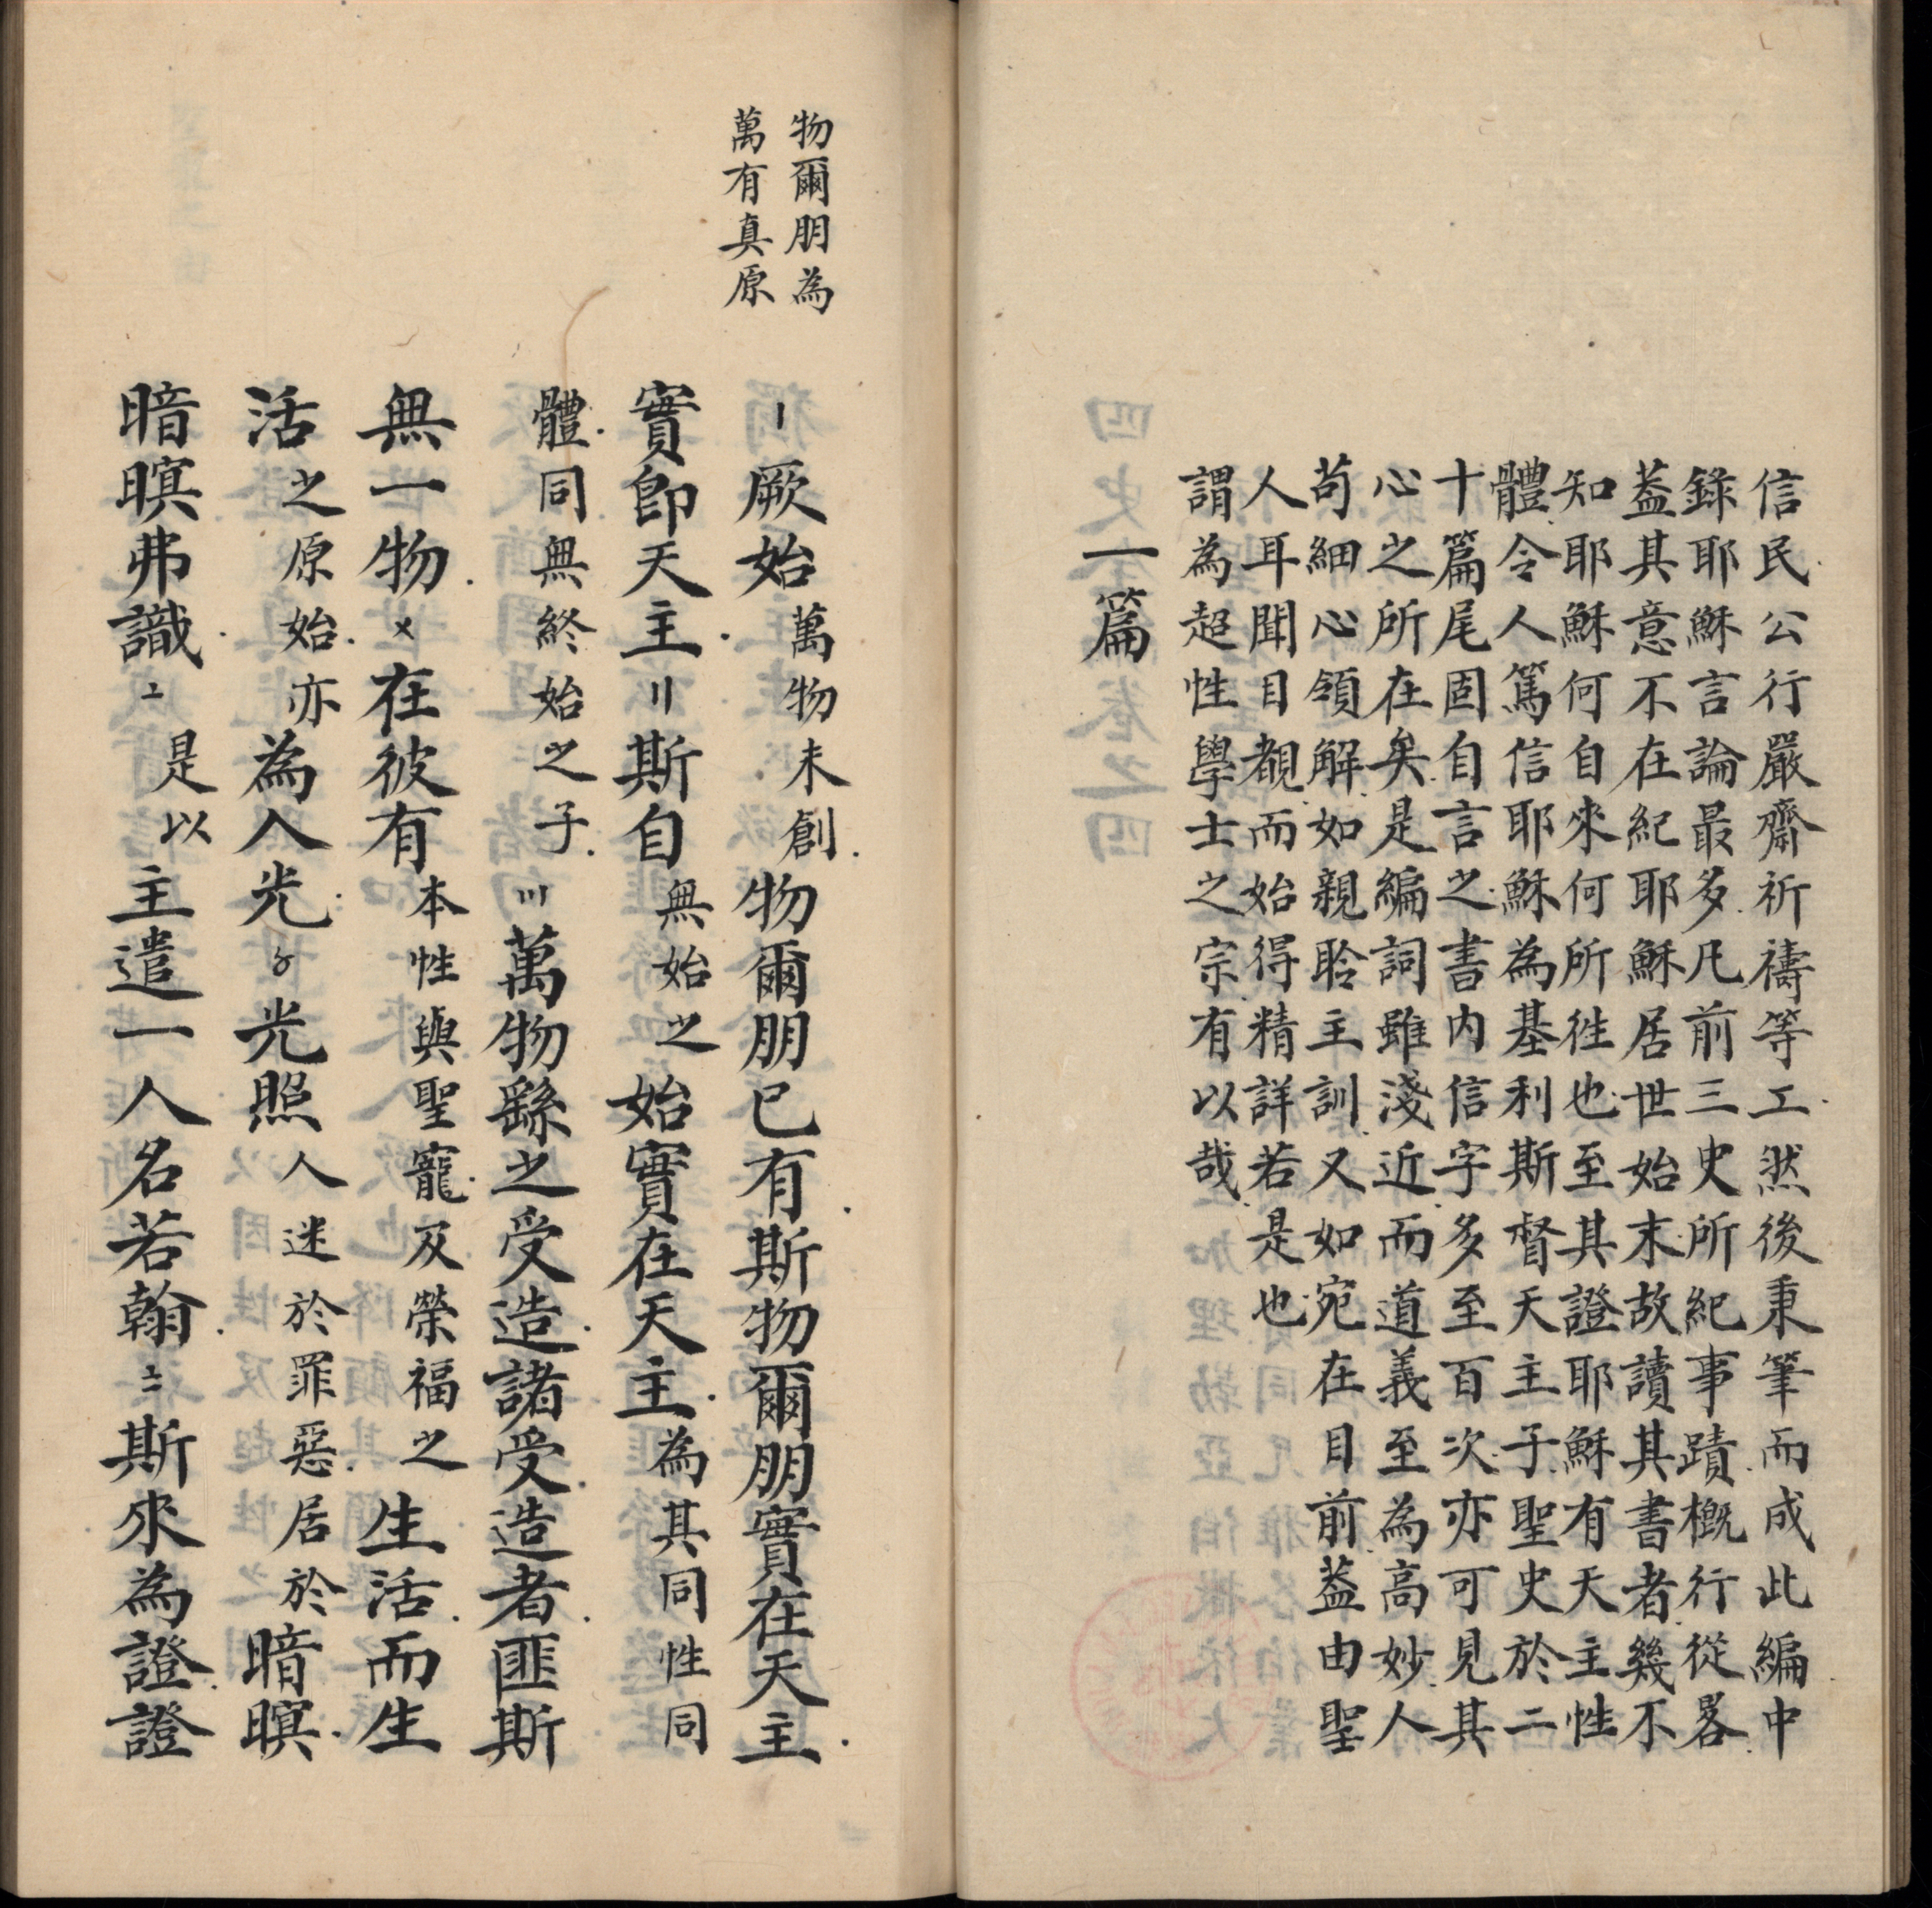 信民公行嚴齋祈禱等工然後秉筆而成此編中
錄耶穌言論最多凡前三史所紀事蹟概行從畧
葢其意不在紀耶穌居世始末故讀其書者幾不
知耶穌何自來何所徃也至其證耶穌有天主性
體令人篤信耶穌為基利斯督天主子聖史於二
十篇尾固自言之書内信字多至百次亦可見其
心之所在矣是編詞雖淺近而道義至為高妙人
苟細心領解如親聆主訓又如宛在目前葢由聖
人耳聞目覩而始得精詳若是也
謂為超性學士之宗有以哉
一篇
物爾朋為
萬有真原
〡厥始萬物未創物爾朋已有斯物爾朋實在天主
實即天主〢斯自無始之始實在天主為其同性同
體同無終始之子〣萬物繇之受造諸受造者匪斯
無一物〤在彼有本性與聖寵及榮福之生活而生
活之原始亦為人光〥光照人迷於罪惡居於暗暝
暗暝弗識〦是以主遣一人名若翰〧斯來為證證